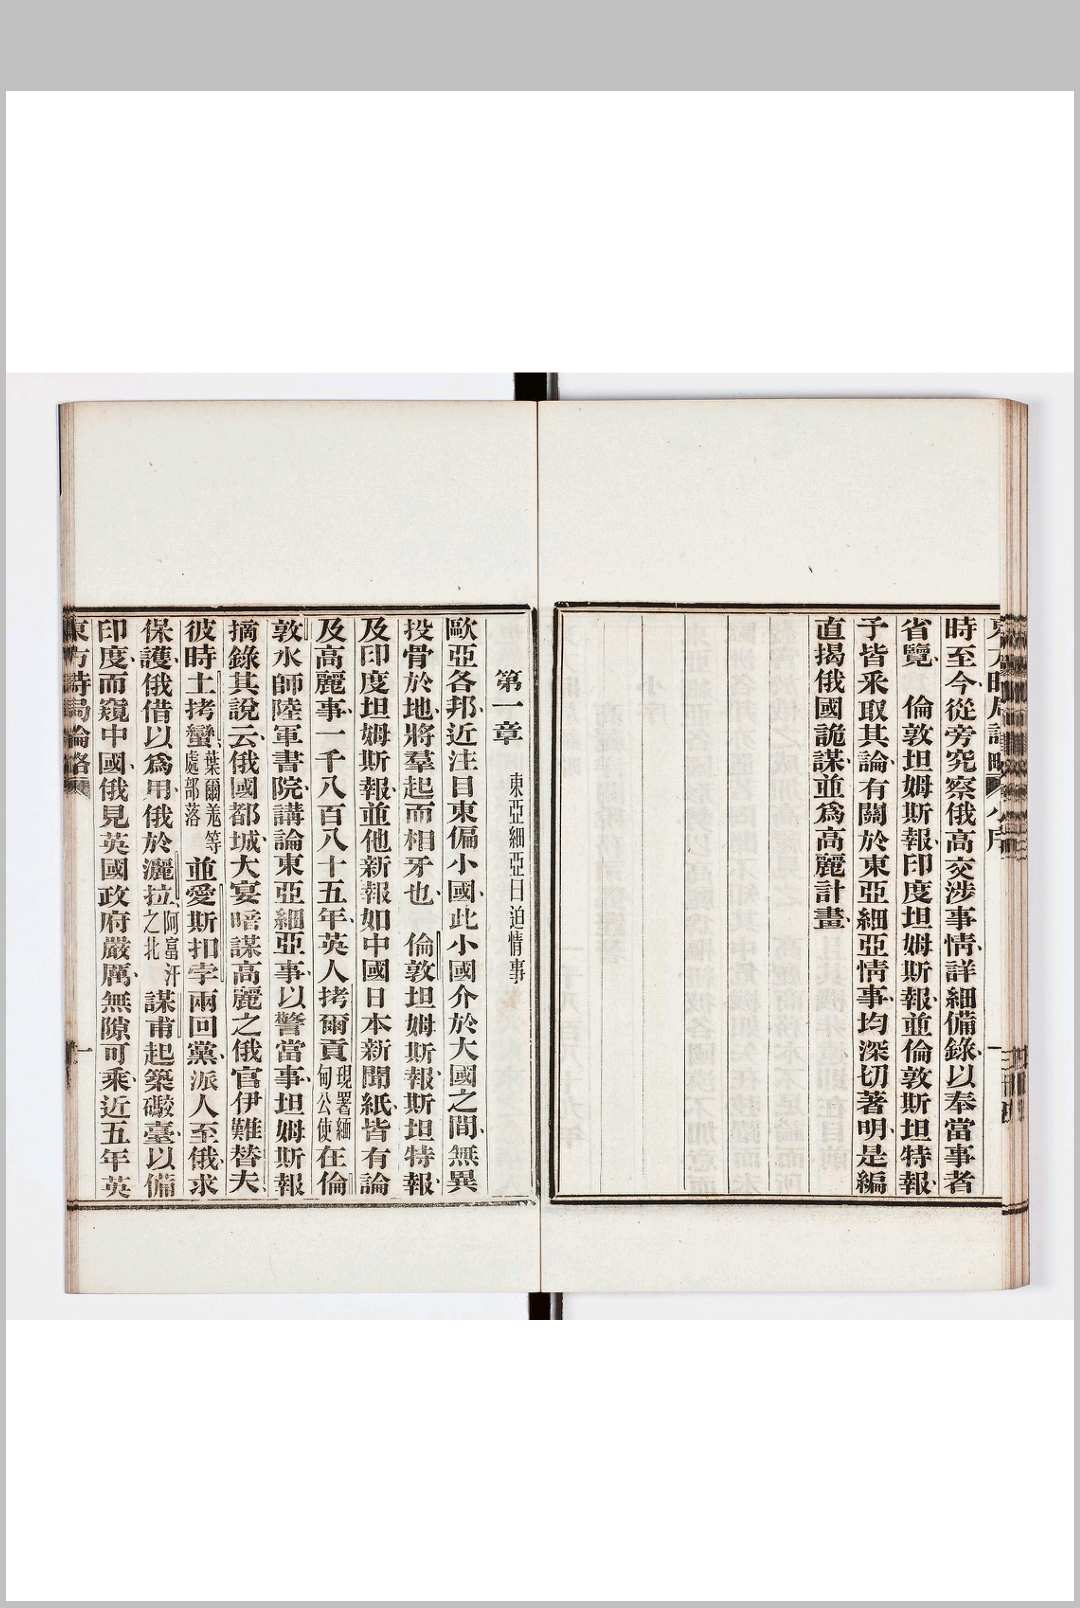 時至今從旁究察俄高交涉事情詳細備錄以奉當事者
省覽　倫敦坦姆斯報印度坦姆斯報並倫敦斯坦特報
予皆采取其論有關於東亞細亞情事均深切著明是編
直揭俄國詭謀並爲高麗計畫
第一章　東亞細亞日迫情事
歐亞各邦近注目東偏小國此小國介於大國之間無異
投骨於地將羣起而相牙也　倫敦坦姆斯報斯坦特報
及印度坦姆斯報並他新報如中國日本新聞紙皆有論
及高麗事一千八百八十五年英人拷爾貢現署緬甸公使在倫
敦水師陸軍書院講論東亞細亞事以警當事坦姆斯報
摘錄其說云俄國都城大宴暗謀高麗之俄官伊難替夫
彼時土拷蠻葉爾羗等處部落並愛斯扣孛兩回黨派人至俄求
保護俄借以爲用俄於灑拉阿富汗之北謀甫起築礮臺以備
印度而窺中國俄見英國政府嚴厲無隙可乘近五年英
東方時局論略　一